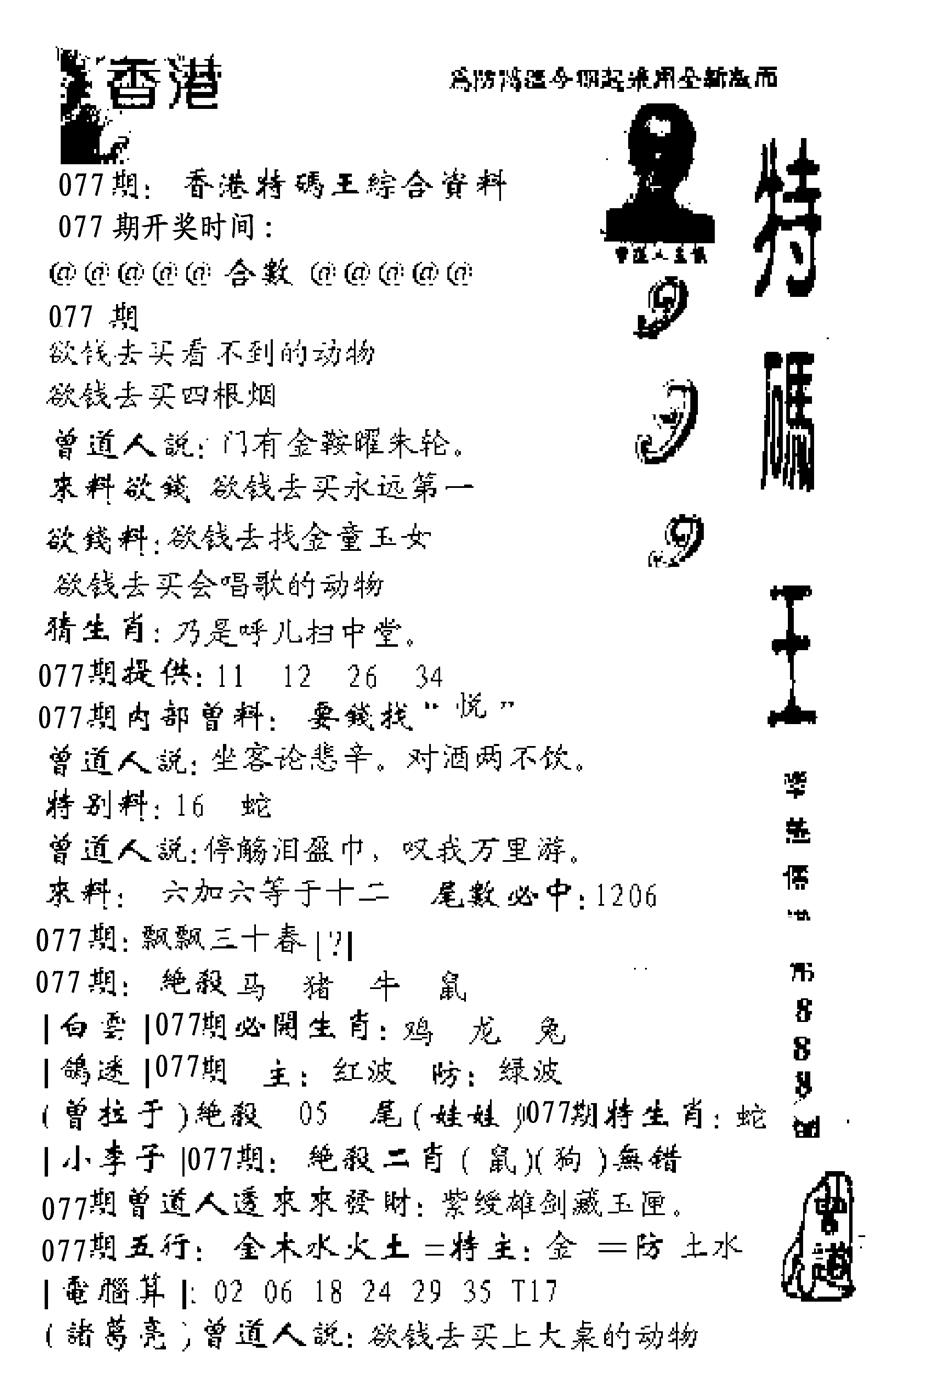 香港
077期： 香港特碼王綜合資料
077 期开奖时间：
@@@@@ 合數 @@@@@
077 期
欲钱去买看不到的动物
欲钱去买四根烟
曾道人説：门有金鞍曜朱轮。
來料欲錢 欲钱去买永远第一
欲錢料：欲钱去找金童玉女
欲钱去买会唱歌的动物
猜生肖：乃是呼儿扫中堂。
077期提供：11 12 26 34
077期内部曾料： 要錢找“悦”
曾道人説：坐客论悲辛。对酒两不饮。
特别料：16 蛇
曾道人説：停觞泪盈巾，叹我万里游。
來料： 六加六等于十二 尾數必中：1206
077期：飘飘三十春|?|
077期： 絶殺马 猪 牛 鼠
|白雲|077期必開生肖：鸡 龙 兔
|鴿迷|077期 主：红波 防：绿波
(曾拉于)絶殺 05 尾(娃娃)077期特生肖：蛇
|小李子|077期： 絶殺二肖(鼠)(狗)無错
077期曾道人透來來發財：紫绶雄剑藏玉匣。
077期五行： 金木水火土=特主：金 =防 土水
|電腦算|：02 06 18 24 29 35 T17
(諸葛亮)曾道人説：欲钱去买上大桌的动物
特碼王
9
9
9
8
8
8
曾道